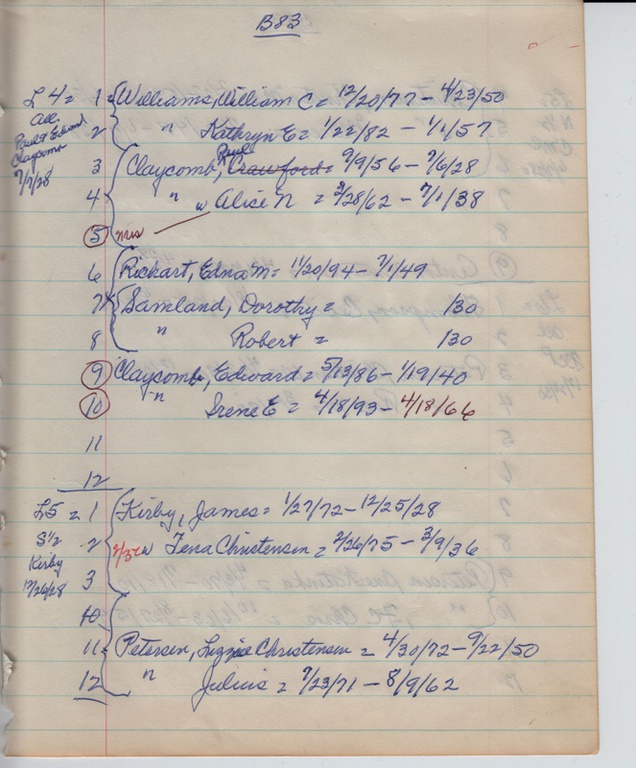 B83
L4 = 1 Williams, William C = 12/20/77 - 4/23/50
All
2 " Kathryn E = 1/22/82 - 1/1/57
Paul & Edward
Claycomb
7/7/28
3 Claycomb, Paul Crawford = 9/9/56 - 7/6/28
4 " w Alice N = 3/28/62 - 7/1/38
5
6 Rickart, Edna M = 11/20/94 - 7/1/49
7 Samland, Dorothy = /30
8 " Robert = /30
9 Claycomb, Edward = 5/13/86 - 1/19/40
10 " Irene E = 4/18/93 - 4/18/66
11
12
L5 = 1 Kirby, James = 1/27/72 - 12/25/28
S 1/2
2 w Tena Christensen = 2/26/75 - 3/9/36
Kirby
12/26/28
3
10
11 Petersen, Lizzie Christensen = 4/30/72 - 9/22/50
12 " Julius = 7/23/71 - 8/9/62